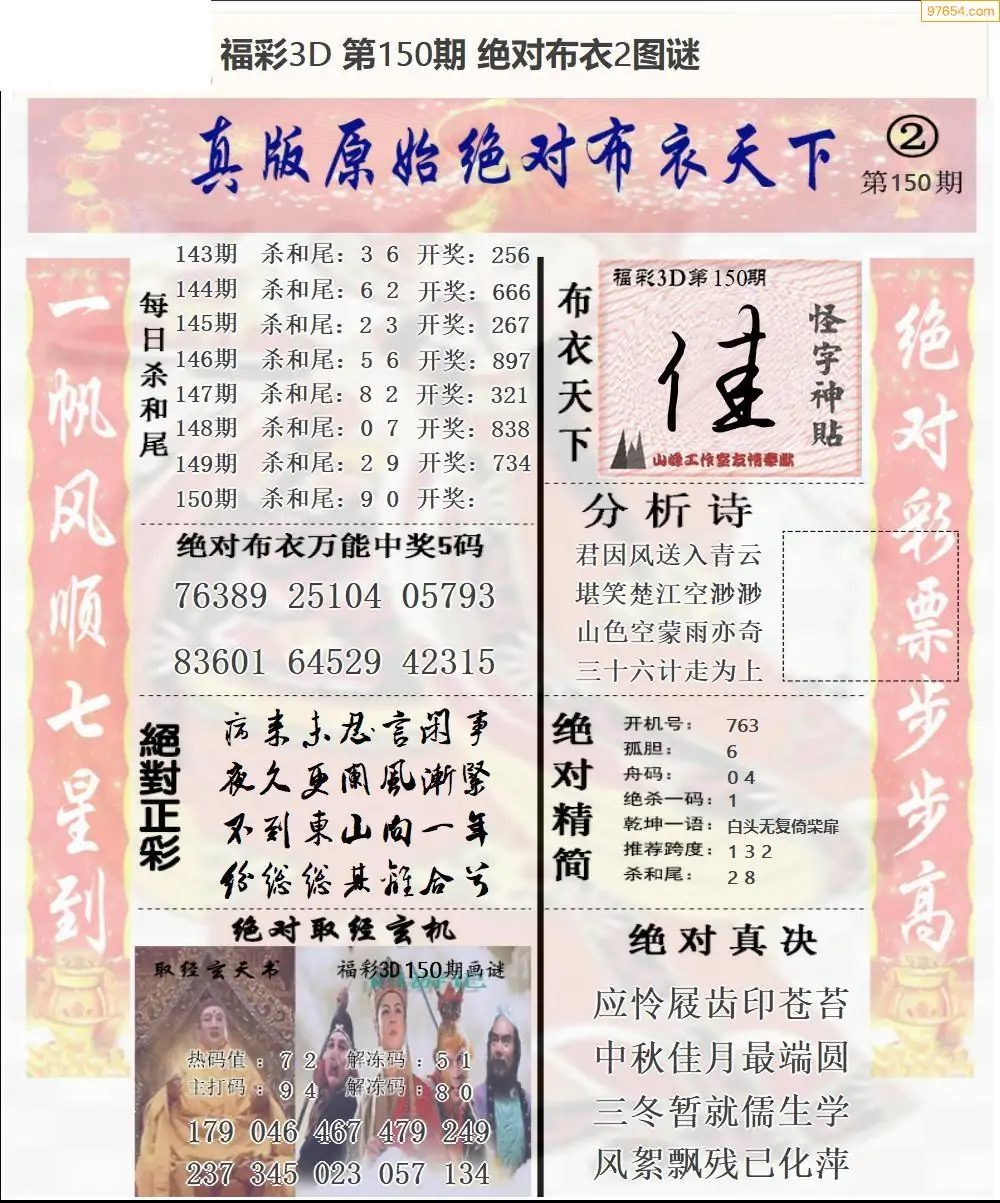 97654.com
福彩3D 第150期 绝对布衣2图谜
真版原始绝对布衣天下
②
第150期
一帆风顺七星到
每日杀和尾
143期 杀和尾：3 6 开奖：256
144期 杀和尾：6 2 开奖：666
145期 杀和尾：2 3 开奖：267
146期 杀和尾：5 6 开奖：897
147期 杀和尾：8 2 开奖：321
148期 杀和尾：0 7 开奖：838
149期 杀和尾：2 9 开奖：734
150期 杀和尾：9 0 开奖：
绝对布衣万能中奖5码
76389 25104 05793
83601 64529 42315
絕對正彩
病来未忍言闲事
夜久更阑風漸緊
不到東山向一年
纷總總其離合兮
绝对取经玄机
取经玄天书
福彩3D150期画谜
热码值：7 2 解冻码：5 1
主打码：9 4 解冻码：8 0
179 046 467 479 249
237 345 023 057 134
布衣天下
福彩3D第150期
佳
怪字神贴
山峰工作室友情奉献
分析诗
君因风送入青云
堪笑楚江空渺渺
山色空蒙雨亦奇
三十六计走为上
绝对精简
开机号：763
孤胆：6
舟码：0 4
绝杀一码：1
乾坤一语：白头无复倚柴扉
推荐跨度：1 3 2
杀和尾：2 8
绝对真决
应怜屐齿印苍苔
中秋佳月最端圆
三冬暂就儒生学
风絮飘残已化萍
绝对彩票步步高